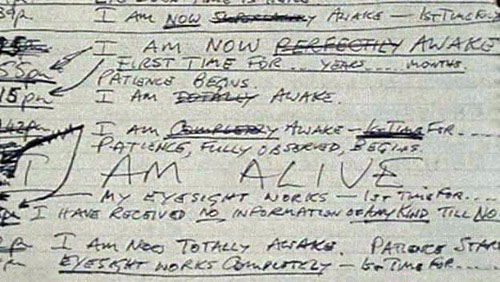 I AM NOW AWAKE — 1ST TIME FOR..
I AM NOW PERFECTLY AWAKE
55pm FIRST TIME FOR.. YEARS... MONTHS.
PATIENCE BEGINS.
15pm I AM TOTALLY AWAKE.
I AM COMPLETELY AWAKE — 1ST TIME FOR....
PATIENCE, FULLY OBSERVED, BEGINS.
I AM ALIVE
MY EYESIGHT WORKS — 1ST TIME FOR....
I HAVE RECEIVED NO INFORMATION OF ANY KIND TILL NO
I AM NOW TOTALLY AWAKE. PATIENCE STAR
EYESIGHT WORKS COMPLETELY — 1ST TIME FOR....